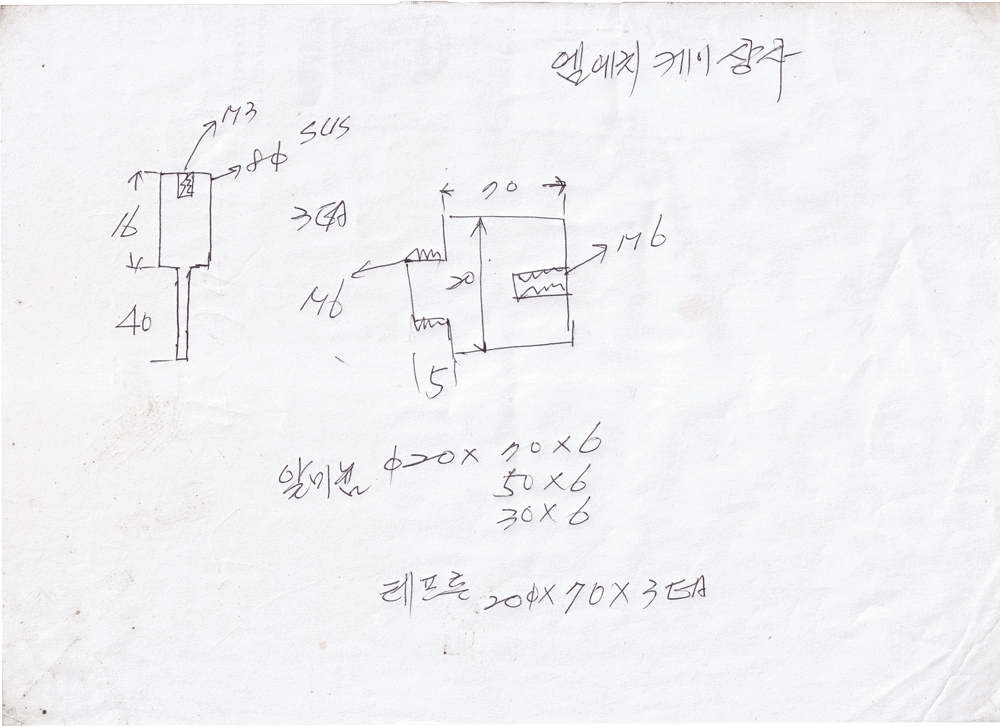 엠에치 케이 상사
M3
8φ SUS
16
40
3EA
70
20
M6
M6
5
알미늄 φ20 x 70 x 6
50 x 6
30 x 6
테프론 20φ x 70 x 3EA